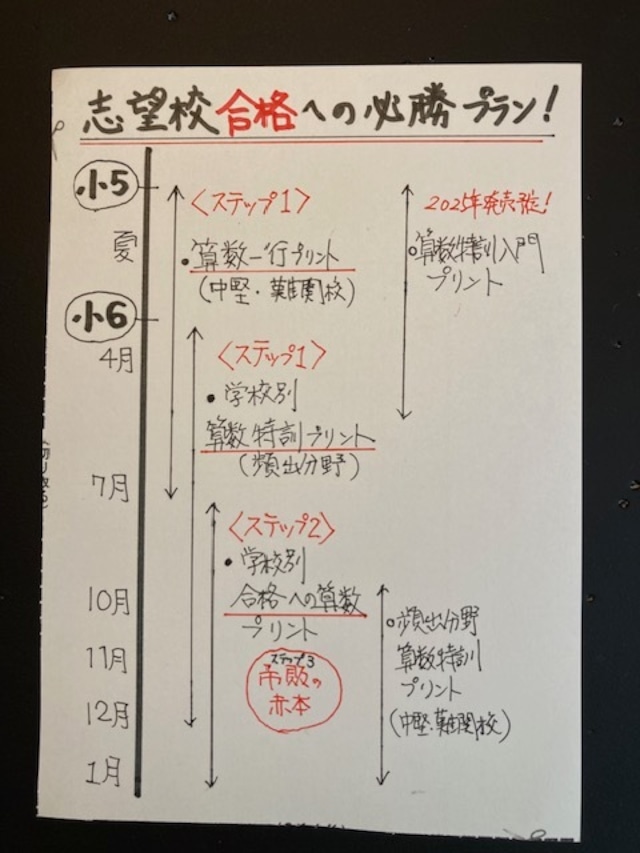 志望校合格への必勝プラン!
小5
夏
小6
4月
7月
10月
11月
12月
1月
〈ステップ1〉
・算数一行プリント
(中堅・難関校)
〈ステップ1〉
・学校別
算数特訓プリント
(頻出分野)
〈ステップ2〉
・学校別
合格への算数
プリント
ステップ3
市販の
赤本
2025年発売予定!
・算数特訓入門
プリント
・頻出分野
算数特訓
プリント
(中堅・難関校)